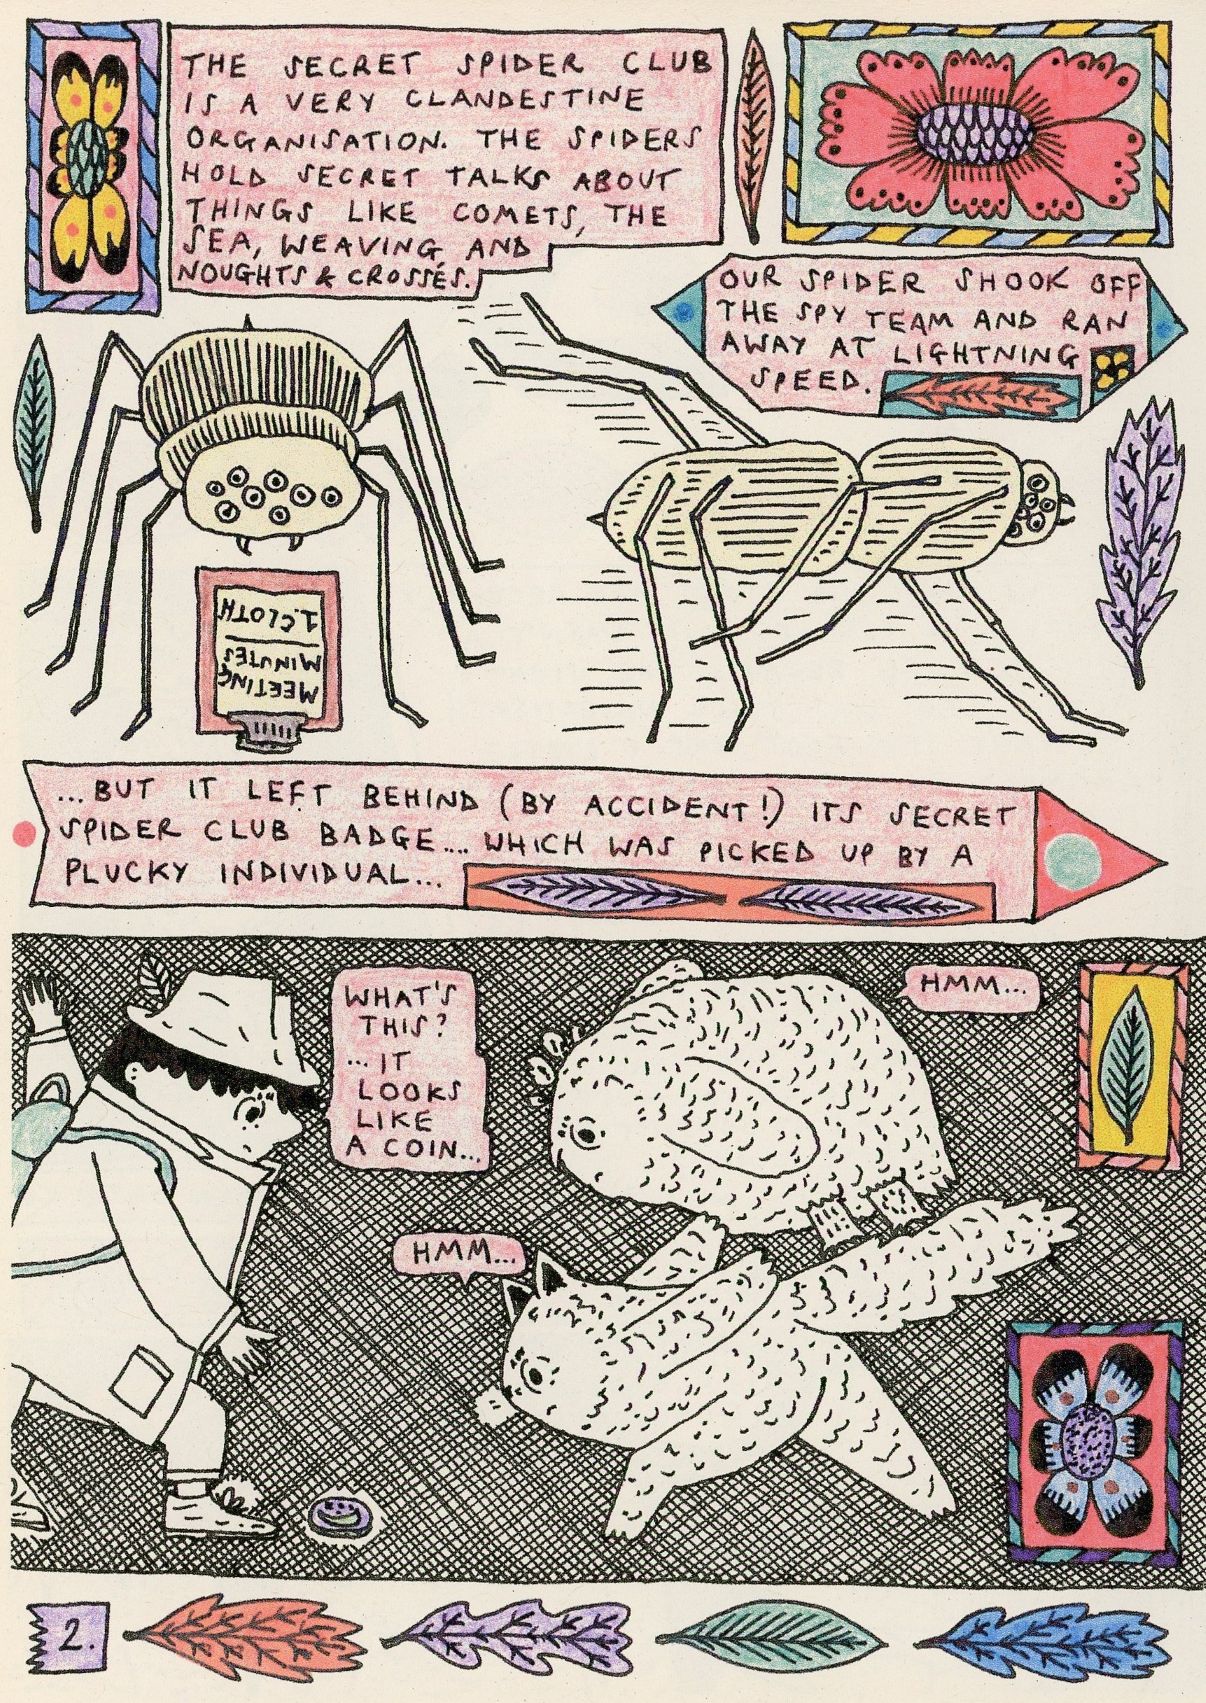 THE SECRET SPIDER CLUB
IS A VERY CLANDESTINE
ORGANISATION. THE SPIDERS
HOLD SECRET TALKS ABOUT
THINGS LIKE COMETS, THE
SEA, WEAVING AND
NOUGHTS & CROSSES.
OUR SPIDER SHOOK OFF
THE SPY TEAM AND RAN
AWAY AT LIGHTNING
SPEED.
MEETING
MINUTES
1. CLOTH
...BUT IT LEFT BEHIND (BY ACCIDENT!) ITS SECRET
SPIDER CLUB BADGE.... WHICH WAS PICKED UP BY A
PLUCKY INDIVIDUAL...
WHAT'S
THIS?
...IT
LOOKS
LIKE
A COIN...
HMM...
HMM...
2.